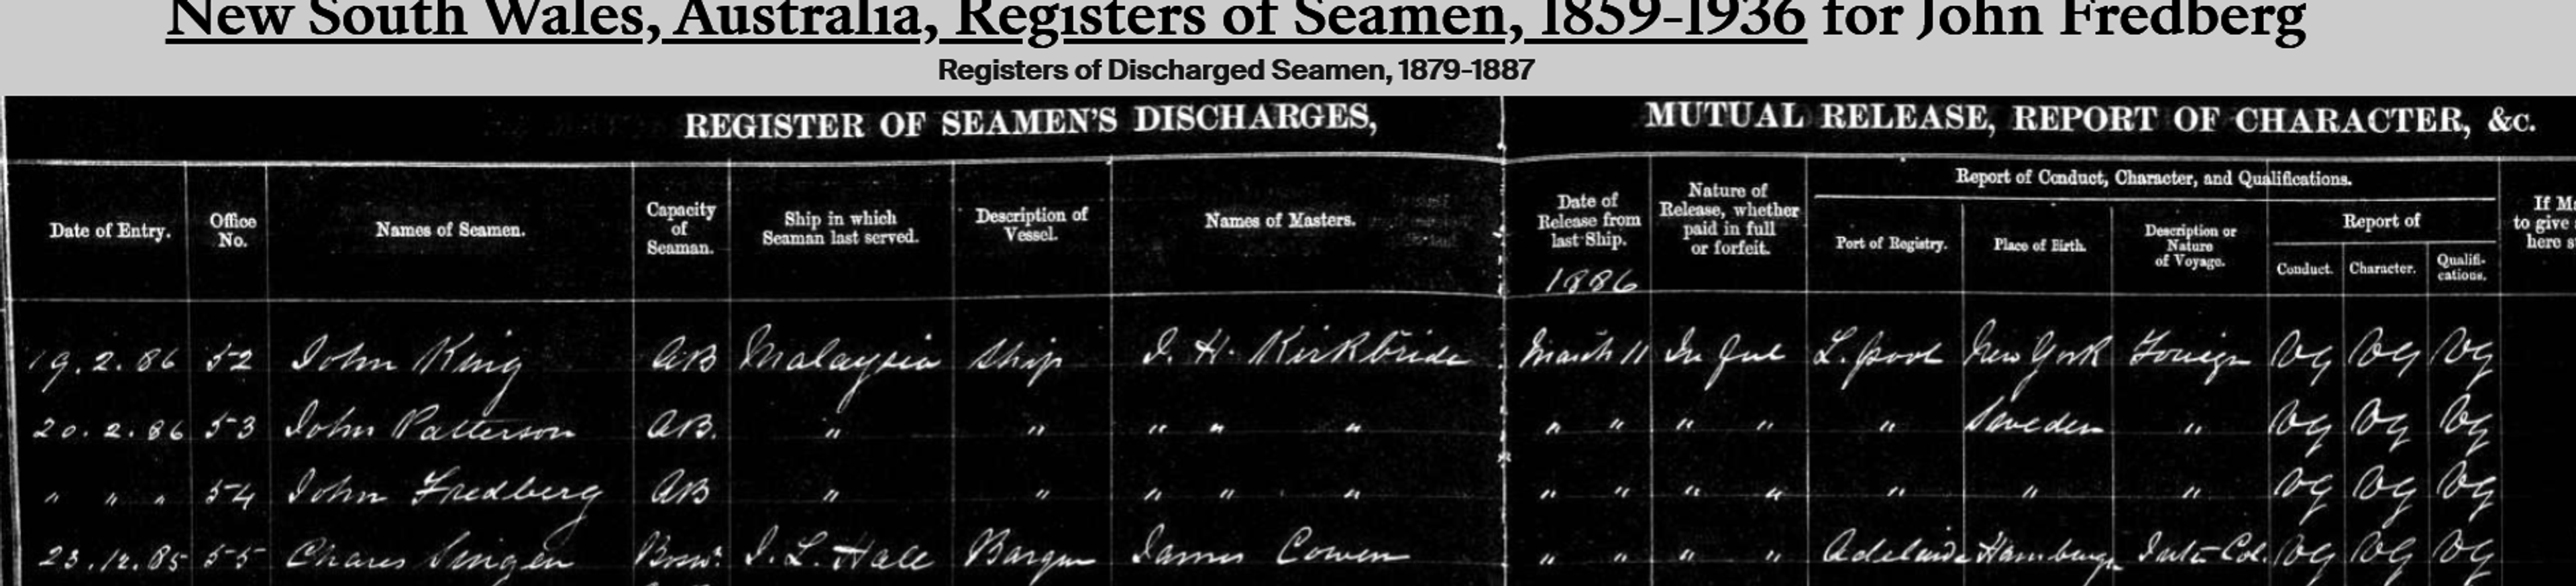 New South Wales, Australia, Registers of Seamen, 1859-1936 for John Fredberg
Registers of Discharged Seamen, 1879-1887
REGISTER OF SEAMEN'S DISCHARGES, MUTUAL RELEASE, REPORT OF CHARACTER, &c.
Date of Entry.
Office No.
Names of Seamen.
Capacity of Seaman.
Ship in which Seaman last served.
Description of Vessel.
Names of Masters.
Date of Release from last Ship.
1886
Nature of Release, whether paid in full or forfeit.
Report of Conduct, Character, and Qualifications.
Port of Registry.
Place of Birth.
Description or Nature of Voyage.
Report of
Conduct.
Character.
Qualifi-cations.
If
to give
here
19.2.86 52 John King AB Malaysia Ship J. H. Kirkbride March 11 In ful L.pool New York Foreign VG VG VG
20.2.86 53 John Patterson AB. " " " " " " " " " " Sweden " VG VG VG
" " " 54 John Fredberg AB " " " " " " " " " " " " VG VG VG
23.12.85 55 Bosn. J. L. Hall Barque James Cowen " " " " Adelaide Hamburg Inter Col. VG VG VG